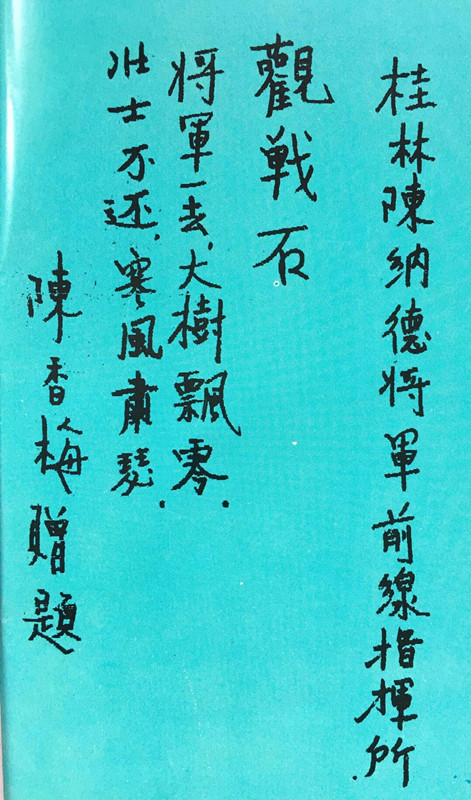 桂林陳納德将軍前線指揮所
觀战石
将軍一去,大樹飄零.
壮士不还,寒風肅瑟.
陳香梅贈題